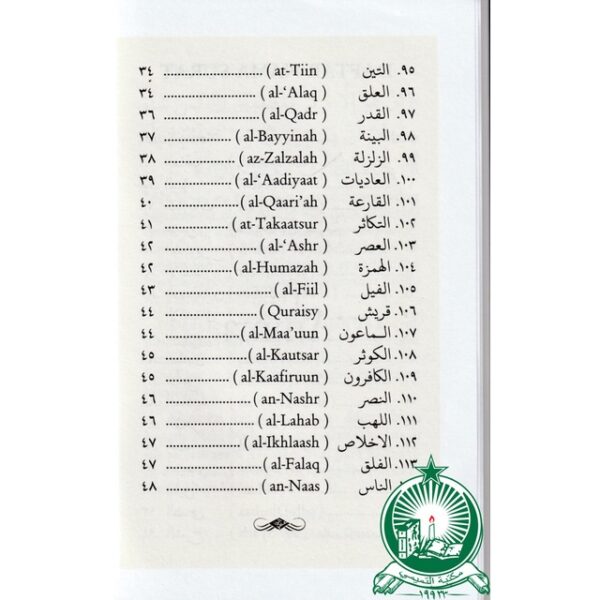 ٩٥. التين (at-Tiin) .......... ٣٤
٩٦. العلق (al-‘Alaq) .......... ٣٤
٩٧. القدر (al-Qadr) .......... ٣٦
٩٨. البينة (al-Bayyinah) .......... ٣٧
٩٩. الزلزلة (az-Zalzalah) .......... ٣٨
١٠٠. العاديات (al-‘Aadiyaat) .......... ٣٩
١٠١. القارعة (al-Qaari'ah) .......... ٤٠
١٠٢. التكاثر (at-Takaatsur) .......... ٤١
١٠٣. العصر (al-‘Ashr) .......... ٤٢
١٠٤. الهمزة (al-Humazah) .......... ٤٢
١٠٥. الفيل (al-Fiil) .......... ٤٣
١٠٦. قريش (Quraisy) .......... ٤٤
١٠٧. الـماعون (al-Maa'uun) .......... ٤٤
١٠٨. الكوثر (al-Kautsar) .......... ٤٥
١٠٩. الكافرون (al-Kaafiruun) .......... ٤٥
١١٠. النصر (an-Nashr) .......... ٤٦
١١١. اللهب (al-Lahab) .......... ٤٦
١١٢. الاخلاص (al-Ikhlaash) .......... ٤٧
١١٣. الفلق (al-Falaq) .......... ٤٧
الناس (an-Naas) .......... ٤٨